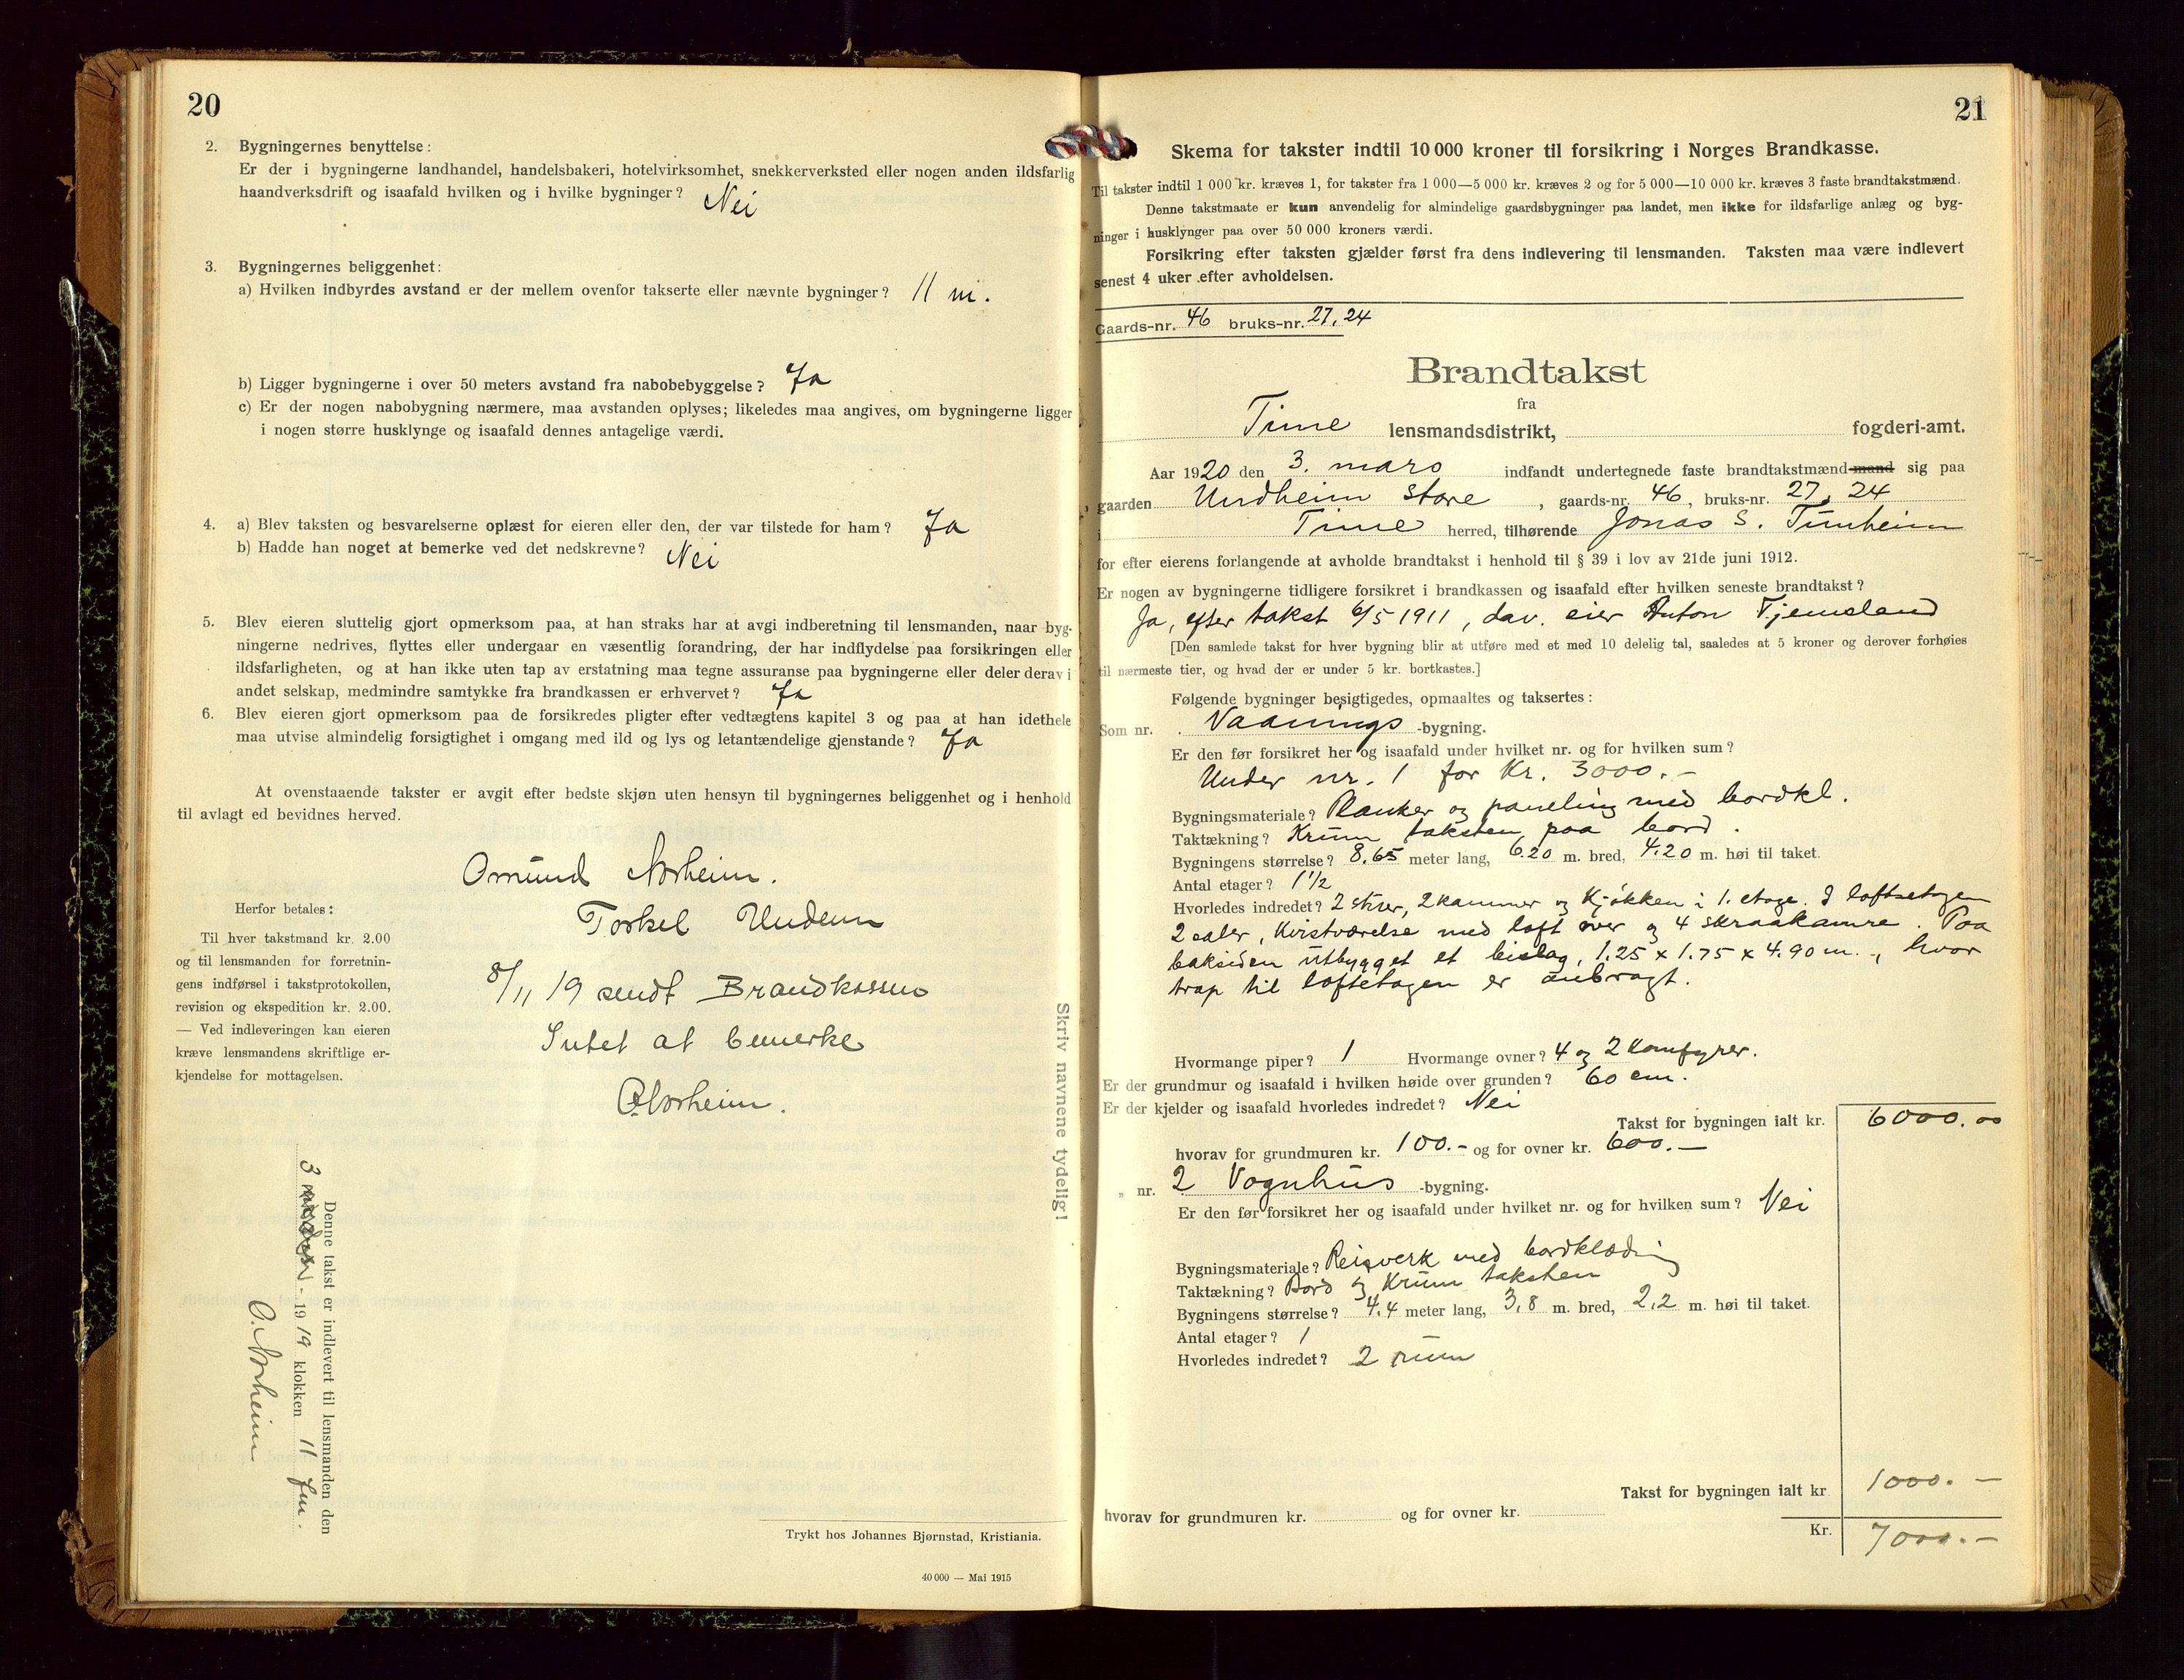 20
2. Bygningernes benyttelse:
Er der i bygningerne landhandel, handelsbakeri, hotelvirksomhet, snekkerverksted eller nogen anden ildsfarlig
haandverksdrift og isaafald hvilken og i hvilke bygninger? Nei
3. Bygningernes beliggenhet:
a) Hvilken indbyrdes avstand er der mellem ovenfor takserte eller nævnte bygninger? 11 m.
b) Ligger bygningerne i over 50 meters avstand fra nabobebyggelse? Ja
c) Er der nogen nabobygning nærmere, maa avstanden oplyses; likeledes maa angives, om bygningerne ligger
i nogen større husklynge og isaafald dennes antagelige værdi.
4. a) Blev taksten og besvarelserne oplæst for eieren eller den, der var tilstede for ham? Ja
b) Hadde han noget at bemerke ved det nedskrevne? Nei
5. Blev eieren sluttelig gjort opmerksom paa, at han straks har at avgi indberetning til lensmanden, naar byg-
ningerne nedrives, flyttes eller undergaar en væsentlig forandring, der har indflydelse paa forsikringen eller
ildsfarligheten, og at han ikke uten tap av erstatning maa tegne assuranse paa bygningerne eller deler derav i
andet selskap, medmindre samtykke fra brandkassen er erhvervet? Ja
6. Blev eieren gjort opmerksom paa de forsikredes pligter efter vedtægtens kapitel 3 og paa at han idethele
maa utvise almindelig forsigtighet i omgang med ild og lys og letantændelige gjenstande? Ja
At ovenstaaende takster er avgit efter bedste skjøn uten hensyn til bygningernes beliggenhet og i henhold
til avlagt ed bevidnes herved.
Omund Norheim.
Torkel Undem
8/11 19 sendt Brandkassen
Intet at bemerke
O. Norheim.
Herfor betales:
Til hver takstmand kr. 2.00
og til lensmanden for forretnin-
gens indførsel i takstprotokollen,
revision og ekspedition kr. 2.00.
— Ved indleveringen kan eieren
kræve lensmandens skriftlige er-
kjendelse for mottagelsen.
Denne takst er indlevert til lensmanden den
3 - 1919 klokken 11 fm.
O. Norheim
Skriv navnene tydelig!
Trykt hos Johannes Bjørnstad, Kristiania.
40 000 — Mai 1915
21
Skema for takster indtil 10 000 kroner til forsikring i Norges Brandkasse.
Til takster indtil 1 000 kr. kræves 1, for takster fra 1 000—5 000 kr. kræves 2 og for 5 000—10 000 kr. kræves 3 faste brandtakstmænd.
Denne takstmaate er kun anvendelig for almindelige gaardsbygninger paa landet, men ikke for ildsfarlige anlæg og byg-
ninger i husklynger paa over 50 000 kroners værdi.
Forsikring efter taksten gjælder først fra dens indlevering til lensmanden. Taksten maa være indlevert
senest 4 uker efter avholdelsen.
Gaards-nr. 46 bruks-nr. 27, 24
Brandtakst
fra
Time lensmandsdistrikt, fogderi-amt.
Aar 1920 den 3. mars indfandt undertegnede faste brandtakstmænd mand sig paa
gaarden Undheim store, gaards-nr. 46, bruks-nr. 27, 24
i Time herred, tilhørende Jonas S. Tunheim
for efter eierens forlangende at avholde brandtakst i henhold til § 39 i lov av 21de juni 1912.
Er nogen av bygningerne tidligere forsikret i brandkassen og isaafald efter hvilken seneste brandtakst?
Ja, efter takst 6/5 1911, dav. eier Anton Tjemsland
[Den samlede takst for hver bygning blir at utføre med et med 10 delelig tal, saaledes at 5 kroner og derover forhøies
til nærmeste tier, og hvad der er under 5 kr. bortkastes.]
Følgende bygninger besigtigedes, opmaaltes og taksertes:
Som nr. Vaanings -bygning.
Er den før forsikret her og isaafald under hvilket nr. og for hvilken sum?
Under nr. 1 for Kr. 3000.-
Bygningsmateriale? Planker og paneling med bordkl.
Taktækning? Krum taksten paa bord.
Bygningens størrelse? 8.65 meter lang, 6.20 m. bred, 4.20 m. høi til taket.
Antal etager? 1 1/2
Hvorledes indredet? 2 stuer, 2 kammer og Kjøkken i 1. etage. I loftsetagen
2 saler, Kvistværelse med loft over og 4 skraakamre. Paa
baksiden utbygget et bislag, 1.25 x 1.75 x 4.90 m., hvor
trap til loftetagen er anbragt.
Hvormange piper? 1 Hvormange ovner? 4 og 2 Komfyrer.
Er der grundmur og isaafald i hvilken høide over grunden? 60 cm.
Er der kjelder og isaafald hvorledes indredet? Nei
Takst for bygningen ialt kr. 6000.00
hvorav for grundmuren kr. 100.- og for ovner kr. 600.-
„ nr. 2 Vognhus -bygning.
Er den før forsikret her og isaafald under hvilket nr. og for hvilken sum? Nei
Bygningsmateriale? Reisverk med bordklædning
Taktækning? Bord og Krum taksten
Bygningens størrelse? 4.4 meter lang, 3,8 m. bred, 2,2 m. høi til taket.
Antal etager? 1
Hvorledes indredet? 2 rum
Takst for bygningen ialt kr 1000.-
hvorav for grundmuren kr. og for ovner kr.
Kr. 7000.-